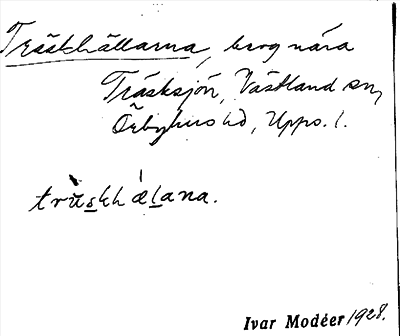 Träskhällarna, berg nära
Träsksjön, Västland sn,
Örbyhus hd, Upps. l.
trùskhælana.
Ivar Modéer 1928.